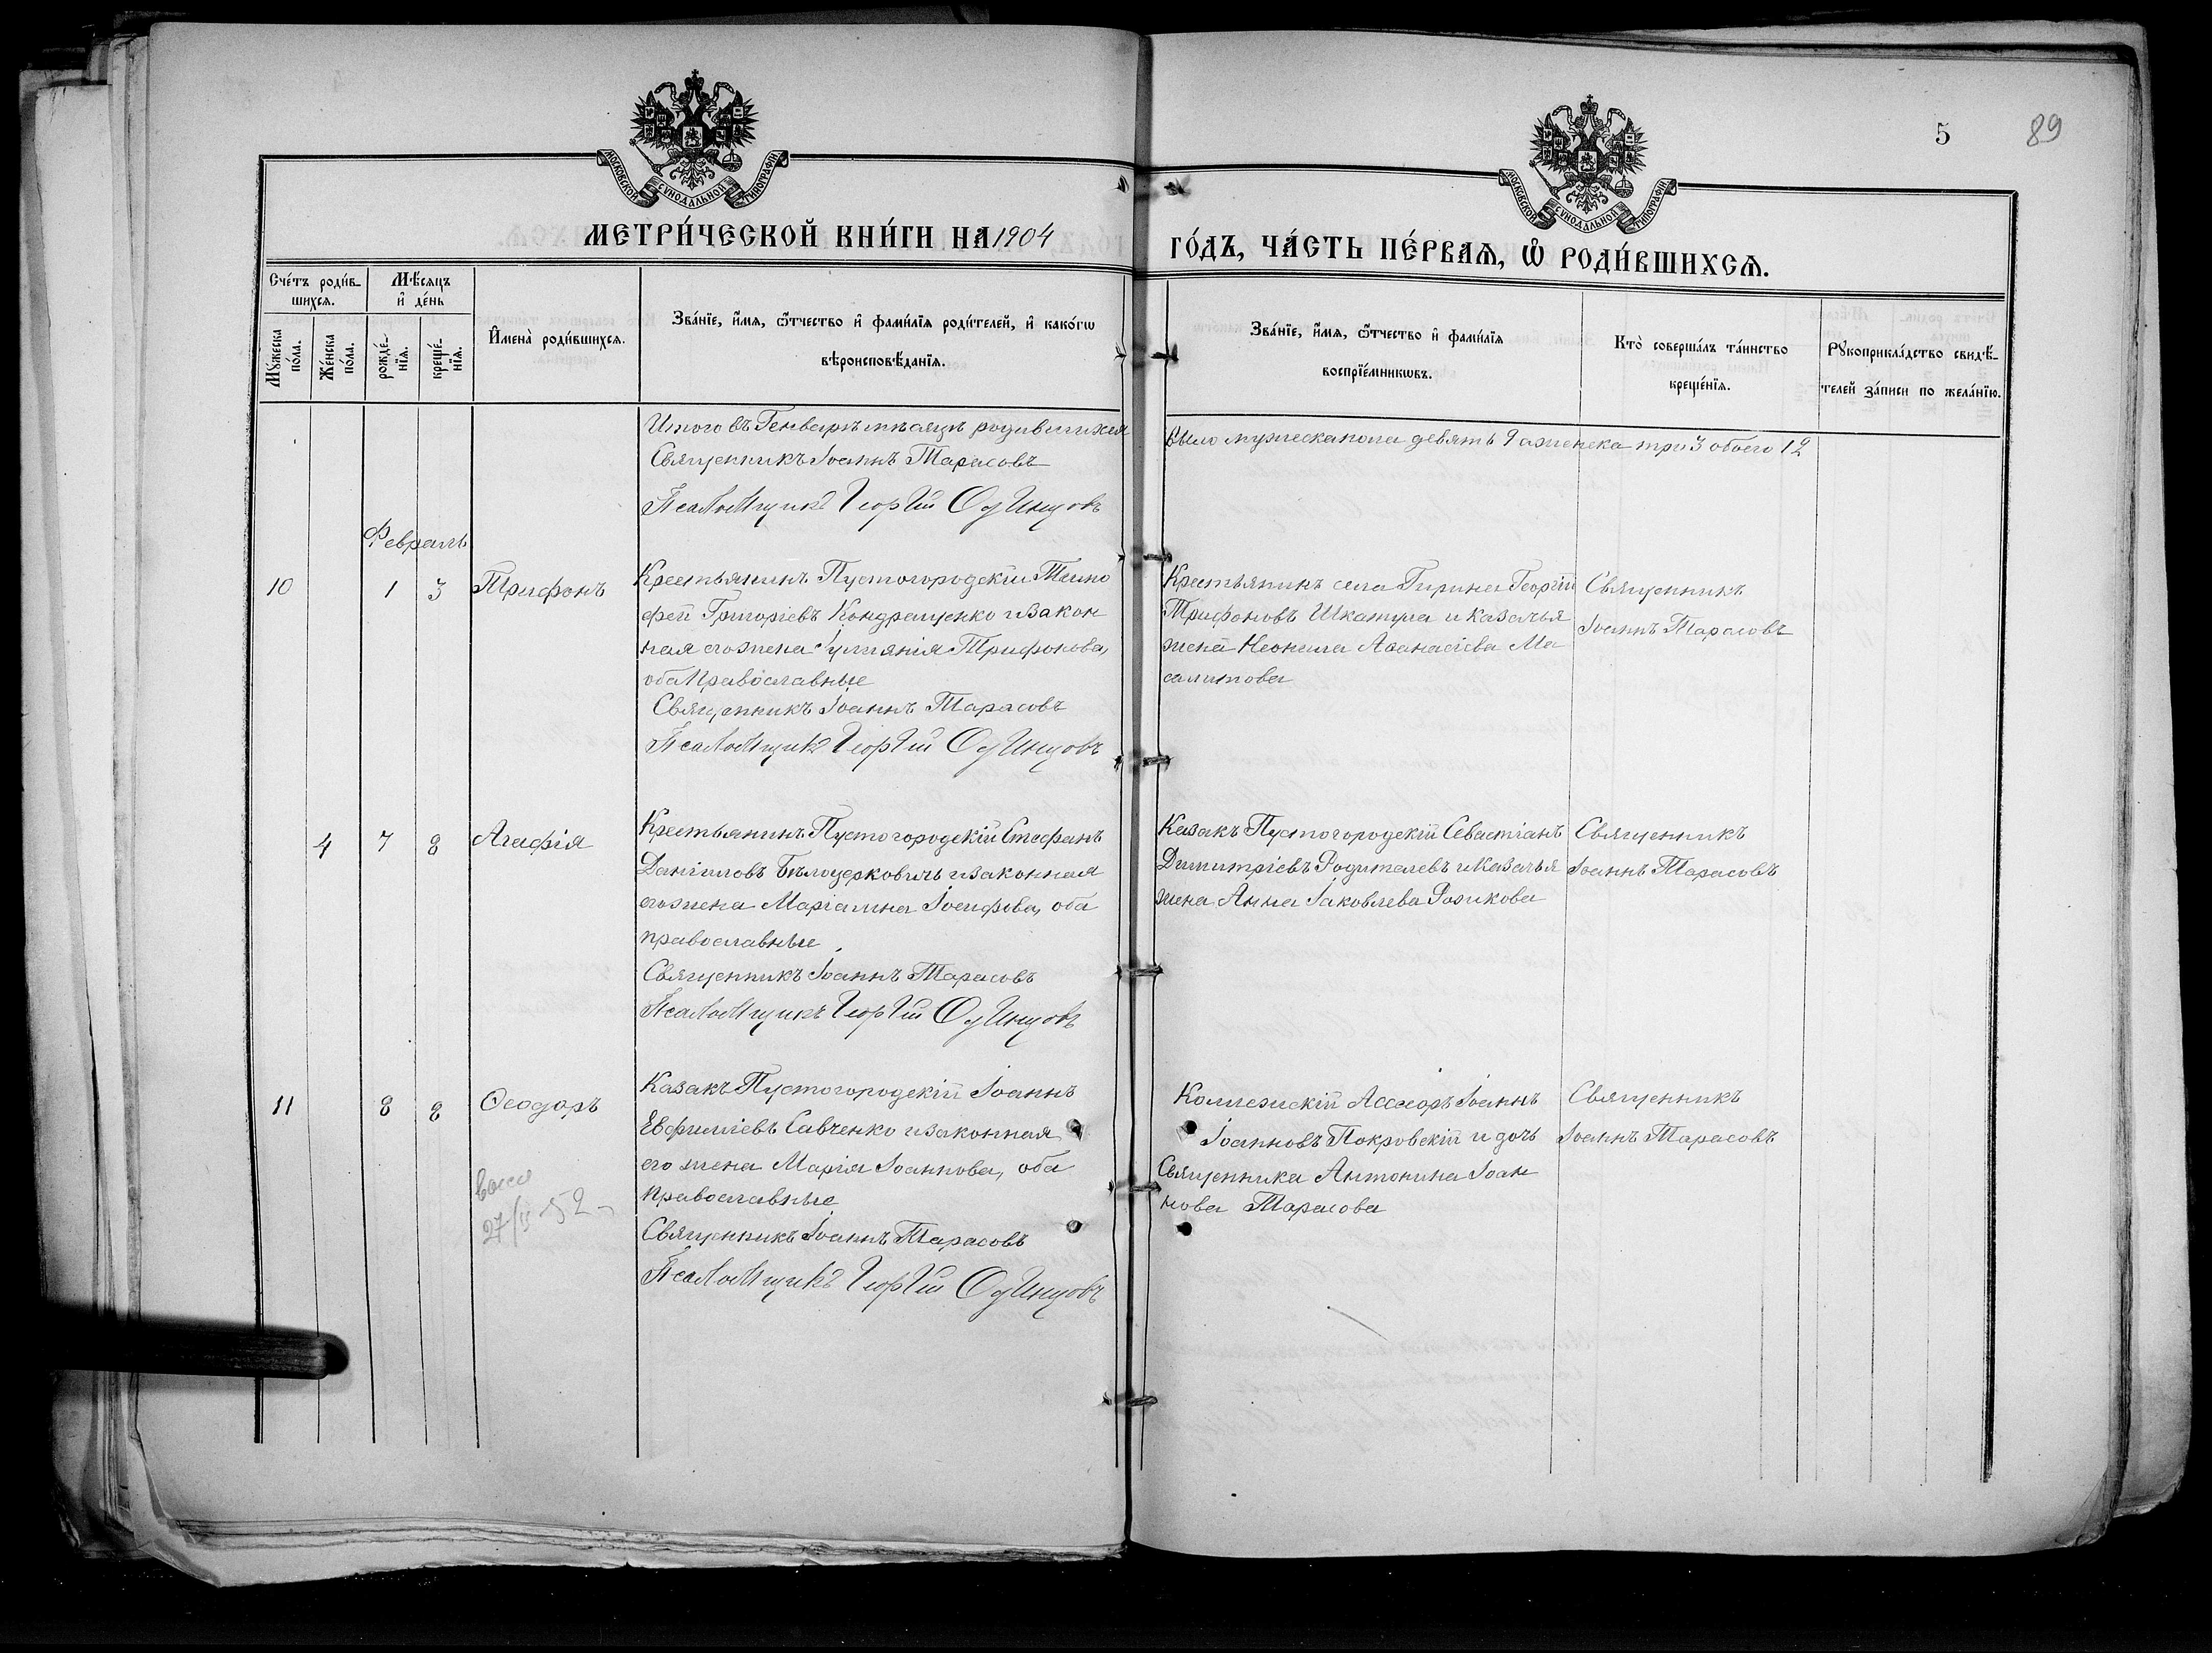 МОСКОВСКОЙ СѴНОДАЛЬНОЙ ТИПОГРАФІИ
МОСКОВСКОЙ СѴНОДАЛЬНОЙ ТИПОГРАФІИ
5
89
МЕТРИ́ЧЕСКОЙ КНИ́ГИ НА 1904
ГО́ДЪ, ЧА́СТЬ ПЕ́РВАѦ, Ѽ РОДИ́ВШИХСѦ.
Сче́тъ роди́в-
шихсѧ.
Мꙋ́жеска
по́ла.
Же́нска
по́ла.
Мѣ́сѧцъ
и҆ де́нь
рожде́-
нїѧ.
креще́-
нїѧ.
И҆мена̀ роди́вшихсѧ.
Зва́нїе, и҆́мѧ, ѻ҆́тчество и҆ фами́лїѧ роди́телей, и҆ како́гѡ
вѣроисповѣ́данїѧ.
Зва́нїе, и҆́мѧ, ѻ҆́тчество и҆ фами́лїѧ
воспрїе́мникѡвъ.
Кто̀ соверша́лъ та́инство
креще́нїѧ.
Рꙋкоприкла́дство свидѣ́-
телей за́писи по жела́нїю.
Итого въ Генварѣ мѣсяцѣ родившихся
было мужеска пола девять 9 а женска три 3 обоего 12
Священникъ Іоаннъ Тарасовъ
Псаломщикъ Георгій Одинцовъ
Февраль
10
1
3
Трифонъ
Крестьянинъ Пустогородскій Тимо
фей Григоріевъ Кондращенко и закон
ная его жена Іуліянія Трифонова,
оба православные
Священникъ Іоаннъ Тарасовъ
Псаломщикъ Георгій Одинцовъ
Крестьянинъ села Гирина Георгій
Трифоновъ Шкатула и казачья
жена Неонила Аѳанасіева Ма
салитова
Священникъ
Іоаннъ Тарасовъ
4
7
8
Агафія
Крестьянинъ Пустогородскій Стефанъ
Даніиловъ Бѣлоцерковичъ и законная
его жена Маріамна Іосифова, оба
православные.
Священникъ Іоаннъ Тарасовъ
Псаломщикъ Георгій Одинцовъ
Казакъ Пустогородскій Севастіанъ
Димитріевъ Родителевъ и казачья
жена Анна Іаковлева Рожкова
Священникъ
Іоаннъ Тарасовъ
11
8
8
Ѳеодоръ
27/II 52
Казакъ Пустогородскій Іоаннъ
Евфиміевъ Савченко и законная
его жена Марія Іоаннова, оба
православные
Священникъ Іоаннъ Тарасовъ
Псаломщикъ Георгій Одинцовъ
Коллежскій Ассесоръ Іоаннъ
Іоанновъ Покровскій и дочь
Священника Антонина Іоан
нова Тарасова
Священникъ
Іоаннъ Тарасовъ